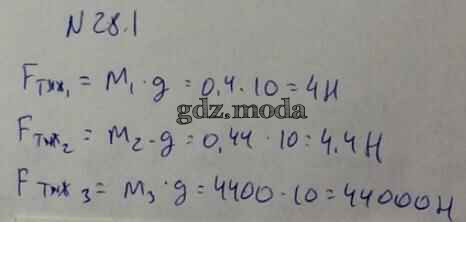 N 28.1
Fтяж₁ = m₁ · g = 0,4 · 10 = 4Н
gdz.moda
Fтяж₂ = m₂ · g = 0,44 · 10 = 4.4 Н
Fтяж 3 = m₃ · g = 4400 · 10 = 44000Н